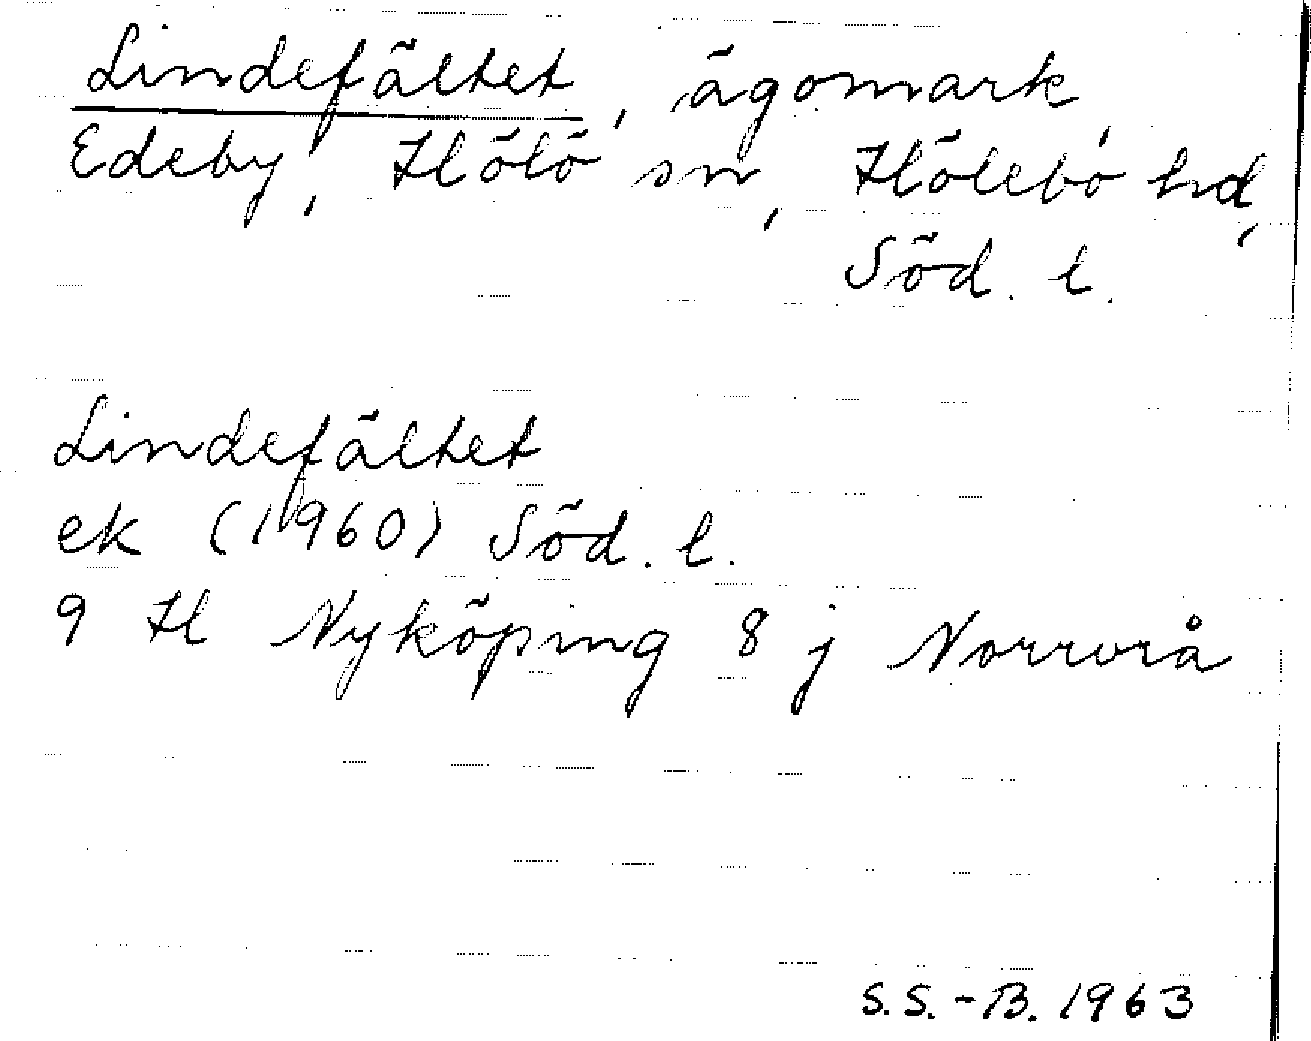 Lindefältet, ägomark,
Edeby, Hölö sn, Hölebo hd,
Söd. l.
Lindefältet
ek (1960) Söd. l.
9 H Nyköping 8 j Norrvrå
S.S.-B. 1963